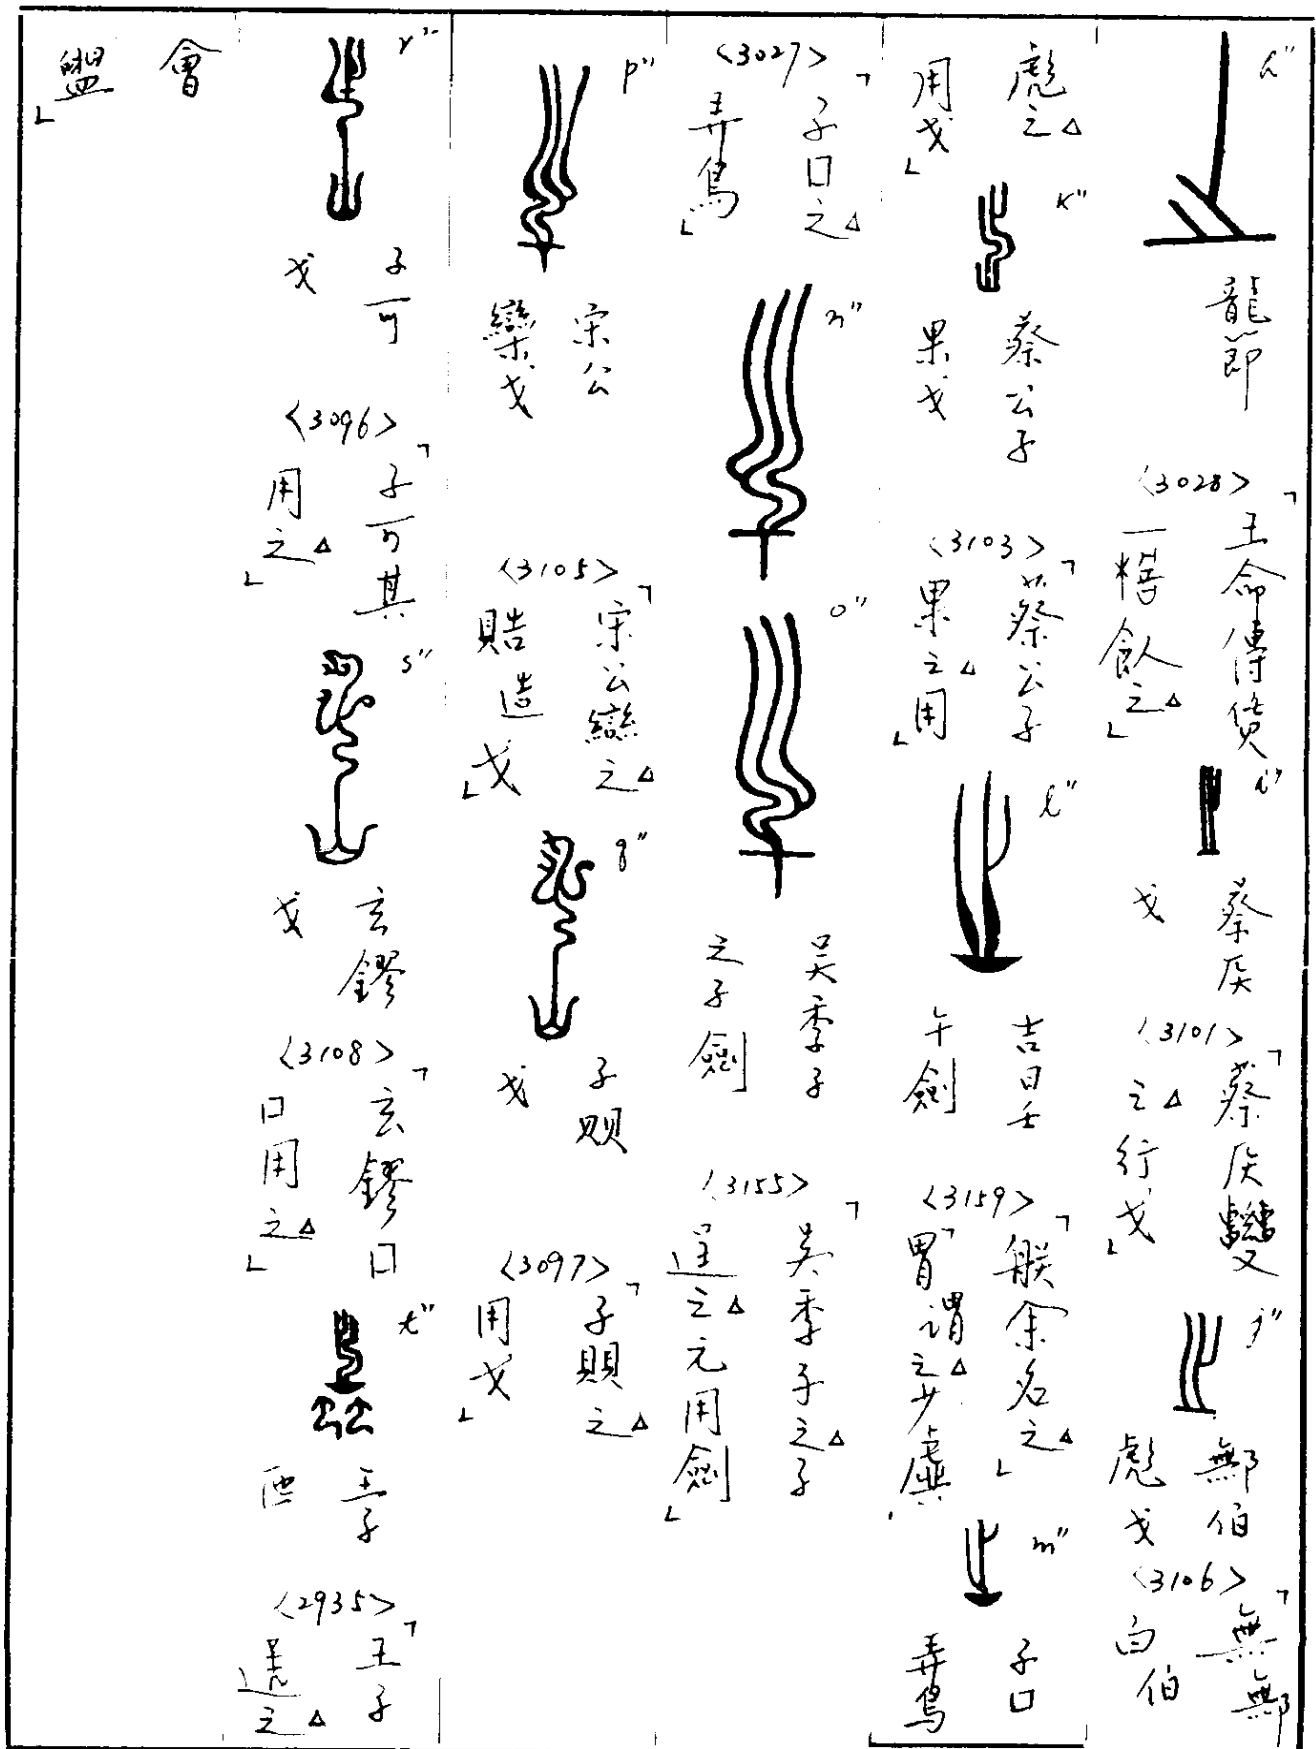 h"
龍節
<3028>
「王命傳賃
一楛飤之△」
i"
蔡侯
戈
<3101>
「蔡侯
之△行戈」
j"
鄦伯
彪戈
<3106>
「無鄦
白伯
彪之△
用戈」
k"
蔡公子
果戈
<3103>
「蔡公子
果之△用」
l"
吉日壬
午劍
<3159>
「朕余名之△」
「胃謂之△少虡」
m"
子口
弄鳥
<3027>
「子口之△
弄鳥」
n"
o"
吳季子
之子劍
<3155>
「吳季子之△子
逞之△元用劍」
p"
宋公
欒戈
<3105>
「宋公欒之△
賠造戈」
q"
子賏
戈
<3097>
「子賏之△
用戈」
r"
子可
戈
<3096>
「子可其
用之△」
s"
玄鏐
戈
<3108>
「玄鏐口
口用之△」
t"
王子
匜
<2935>
「王子
之△
會
盥」